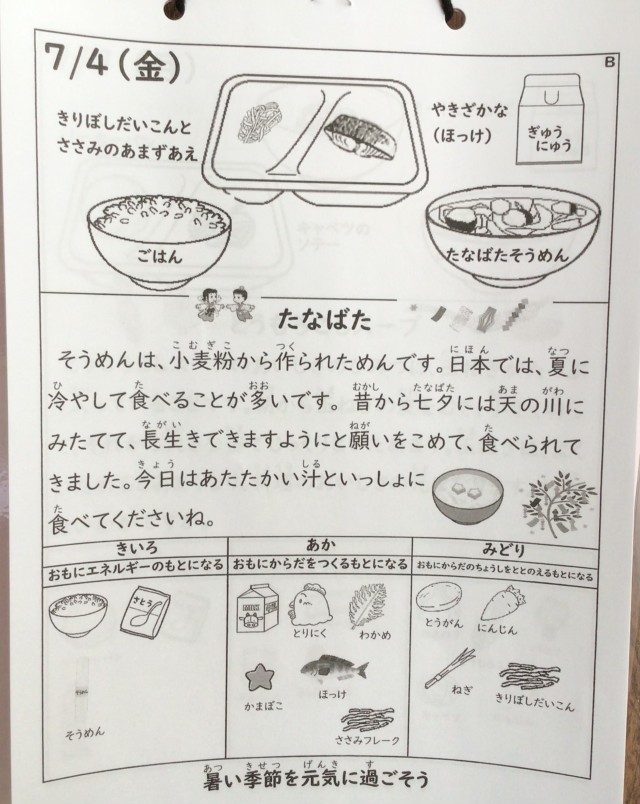 7/4(金)
B
きりぼしだいこんと
ささみのあまずあえ
やきざかな
(ほっけ)
ぎゅう
にゅう
ごはん
たなばたそうめん
たなばた
そうめんは、小麦粉から作られためんです。日本では、夏に
冷やして食べることが多いです。昔から七夕には天の川に
みたてて、長生きできますようにと願いをこめて、食べられて
きました。今日はあたたかい汁といっしょに
食べてくださいね。
きいろ
おもにエネルギーのもとになる
あか
おもにからだをつくるもとになる
みどり
おもにからだのちょうしをととのえるもとになる
さとう
そうめん
とりにく
わかめ
かまぼこ
ほっけ
ささみフレーク
とうがん
にんじん
ねぎ
きりぼしだいこん
暑い季節を元気に過ごそう